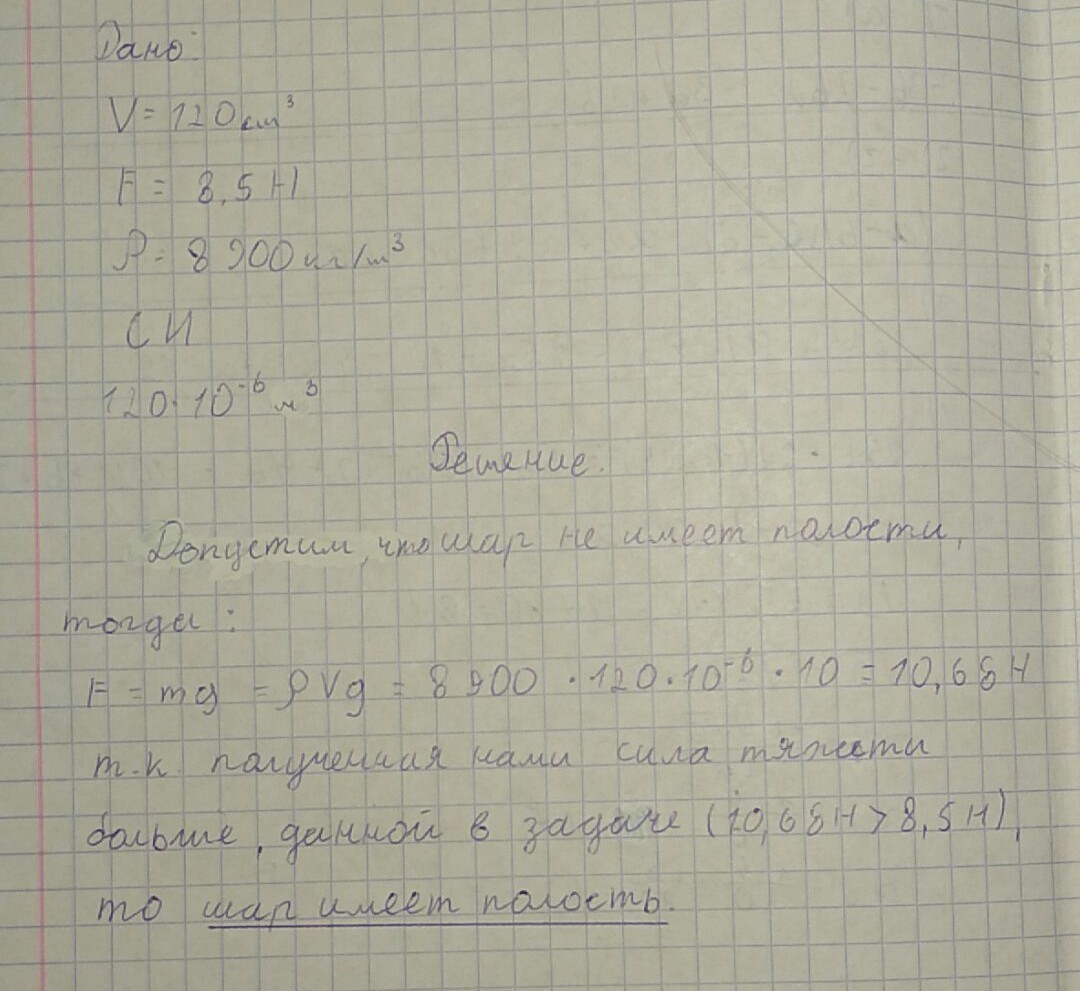 Дано:
V = 120 см³
F = 8,5 Н
ρ = 8 900 кг/м³
СИ
120 · 10⁻⁶ м³
Решение.
Допустим, что шар не имеет полости,
тогда:
F = mg = ρVg = 8 900 · 120 · 10⁻⁶ · 10 = 10,68 Н
т.к полученная нами сила тяжести
больше, данной в задаче (10,68 Н > 8,5 Н),
то шар имеет полость.